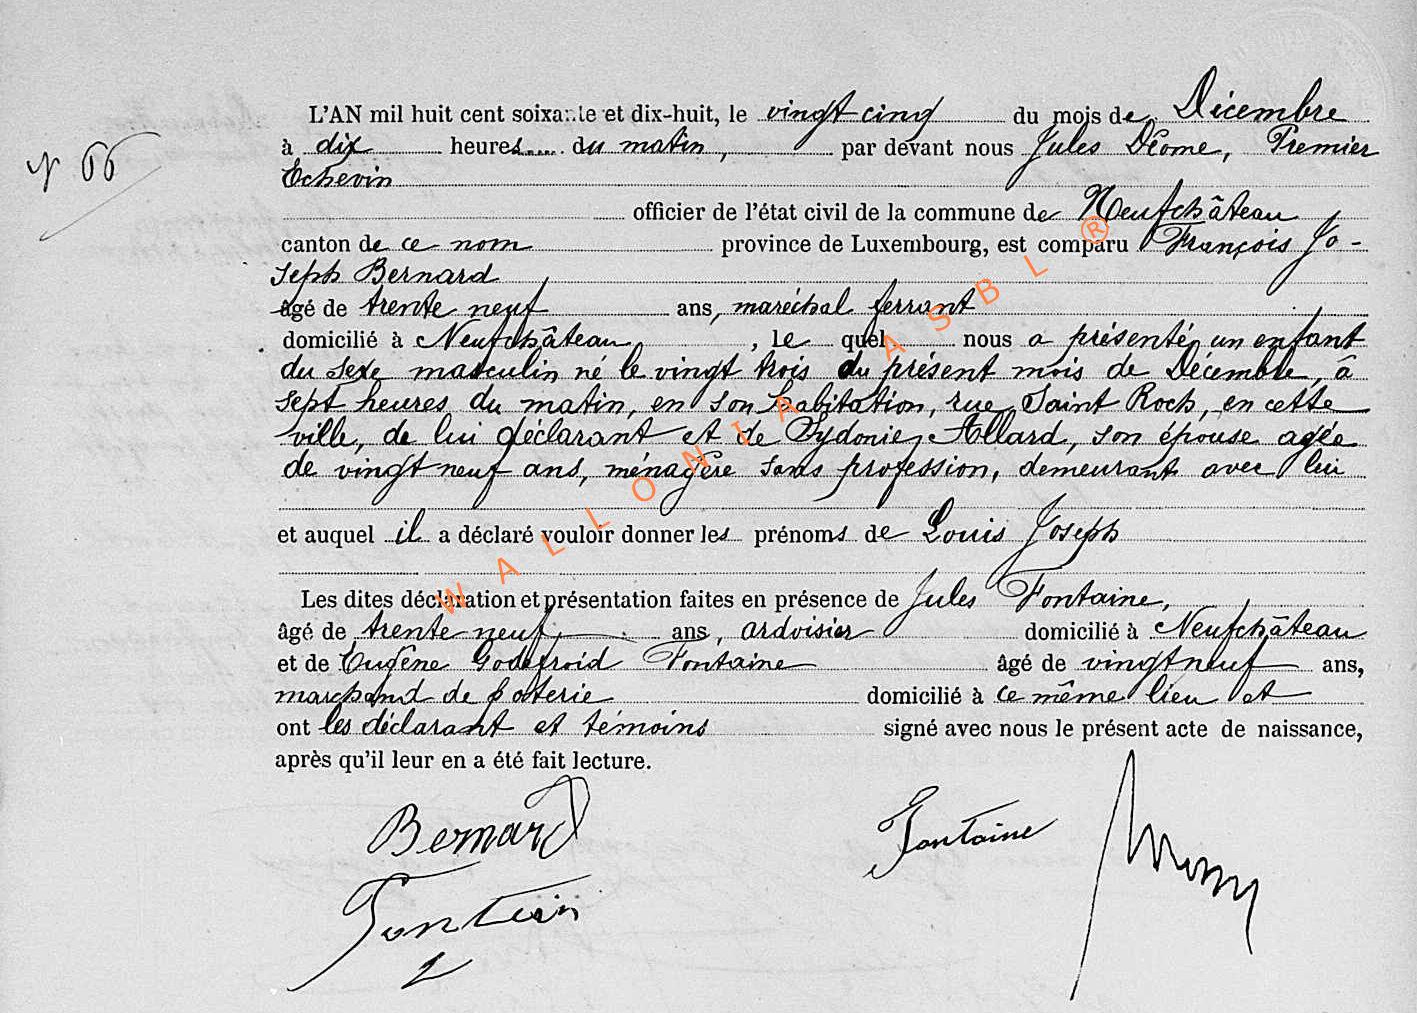 L'AN mil huit cent soixante et dix-huit, le vingt cinq du mois de Décembre
N° 66
à dix heures du matin, par devant nous Jules Déome, Premier
Echevin
officier de l'état civil de la commune de Neufchâteau
canton de ce nom province de Luxembourg, est comparu François Jo-
seph Bernard
âgé de trente neuf ans, maréchal ferrant
domicilié à Neufchâteau, le quel nous a présenté un enfant
du sexe masculin né le vingt trois du présent mois de Décembre, à
sept heures du matin, en son habitation, rue Saint Roch, en cette
ville, de lui déclarant et de Sydonie Allard, son épouse agée
de vingt neuf ans, ménagère sans profession, demeurant avec lui
et auquel il a déclaré vouloir donner les prénoms de Louis Joseph
Les dites déclaration et présentation faites en présence de Jules Fontaine,
âgé de trente neuf ans, ardoisier domicilié à Neufchâteau
et de Eugène Godefroid Fontaine âgé de vingt neuf ans,
marchand de poterie domicilié à ce même lieu et
ont les déclarant et témoins signé avec nous le présent acte de naissance,
après qu'il leur en a été fait lecture.
Bernard
Fontaine
WALLONIA ASBL ®